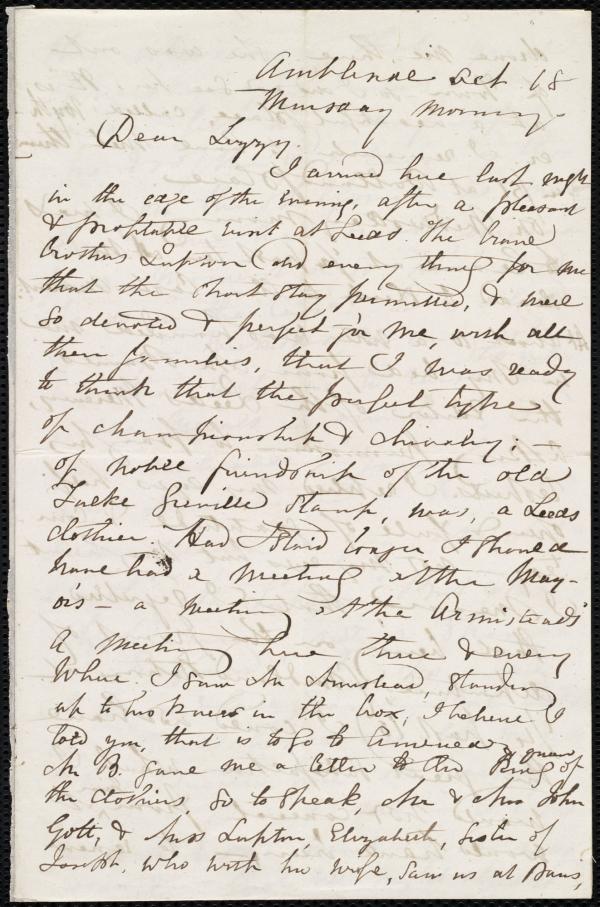 Ambleside Oct 18
Thursday Morning.
Dear Lizzy.
I arrived here last night
in the edge of the evening, after a pleasant
& profitable visit at Leeds. The brave
brothers Lupton did every thing for me
that the short stay permitted, & were
so devoted & perfect for me, with all
their families, that I was ready
to think that the perfect type
of championship & chivalry; —
of noble friendship of the old
Fulke Greville stamp, was, a Leeds
clothier. Had I staid longer I should
have had a meeting at the May-
or's — a meeting at the Armisteads'
a meeting here there & every
where. I saw Mr Armistead, standing
up to his knees in the box, I believe I
told you, that is to go to America;
Mr B. gave me a letter to the King of
the clothiers, so to speak, Mr & Mrs John
Gott, & Miss Lupton, Elizabeth, sister of
Joseph, who with his wife, saw us at Paris,